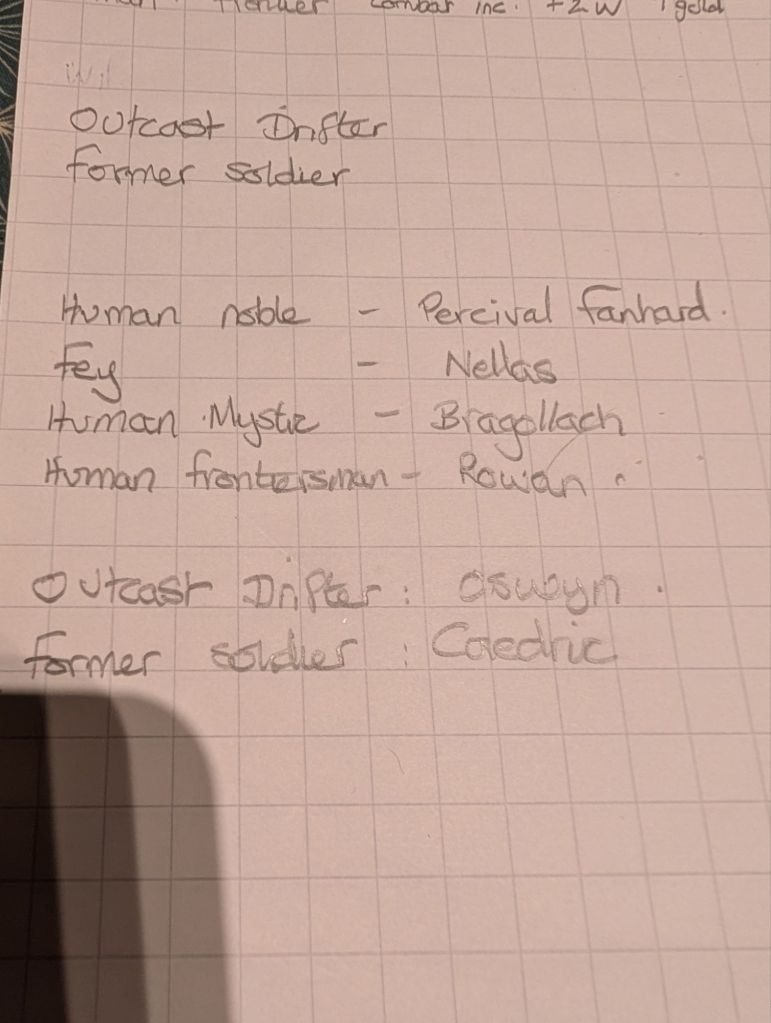 combat inc. +2W 1 gold
Outcast Drifter
Former soldier
Human noble - Percival Fanhard.
Fey - Nellas
Human Mystic - Bragollach
Human frontiersman - Rowan
Outcast Drifter: Oswyn.
Former soldier: Caedric